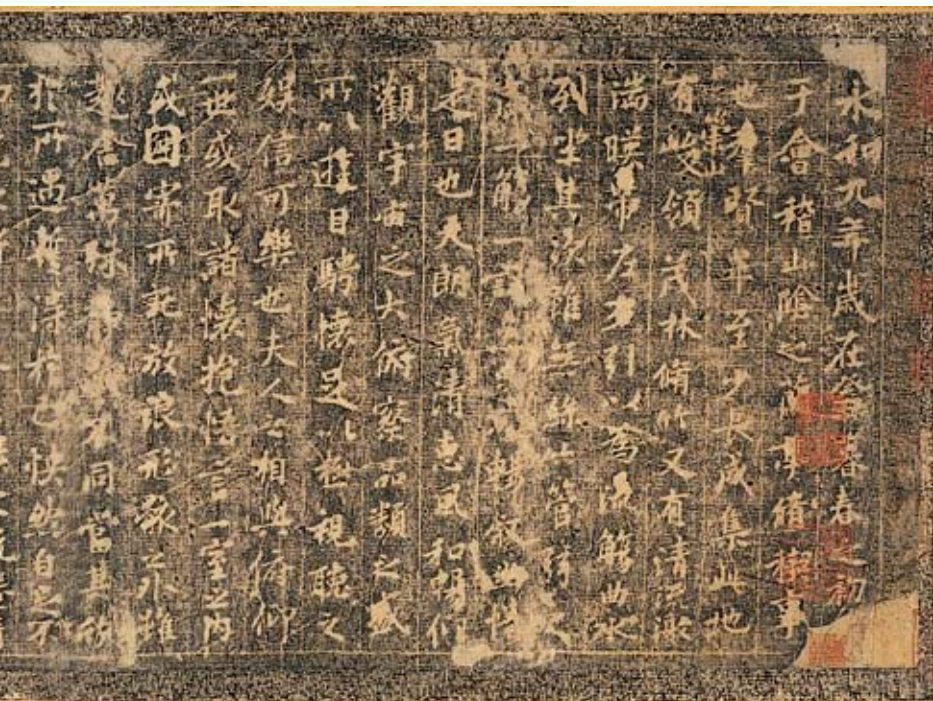 永和九年歲在癸暮春之初
于會稽山陰之蘭亭脩禊事
也羣賢畢至少長咸集此地
有崇山峻領茂林脩竹又有清流激
湍暎帶左右引以為流觴曲水
列坐其次雖無絲竹管弦之
盛一觴一詠暢叙幽情
是日也天朗氣清惠風和暢仰
觀宇宙之大俯察品類之盛
所以遊目騁懷足以極視聽之
娛信可樂也夫人之相與俯仰
一世或取諸懷抱悟言一室之內
或因寄所託放浪形骸之外雖
趣舍萬殊靜躁不同當其欣
於所遇暫得於己快然自足不